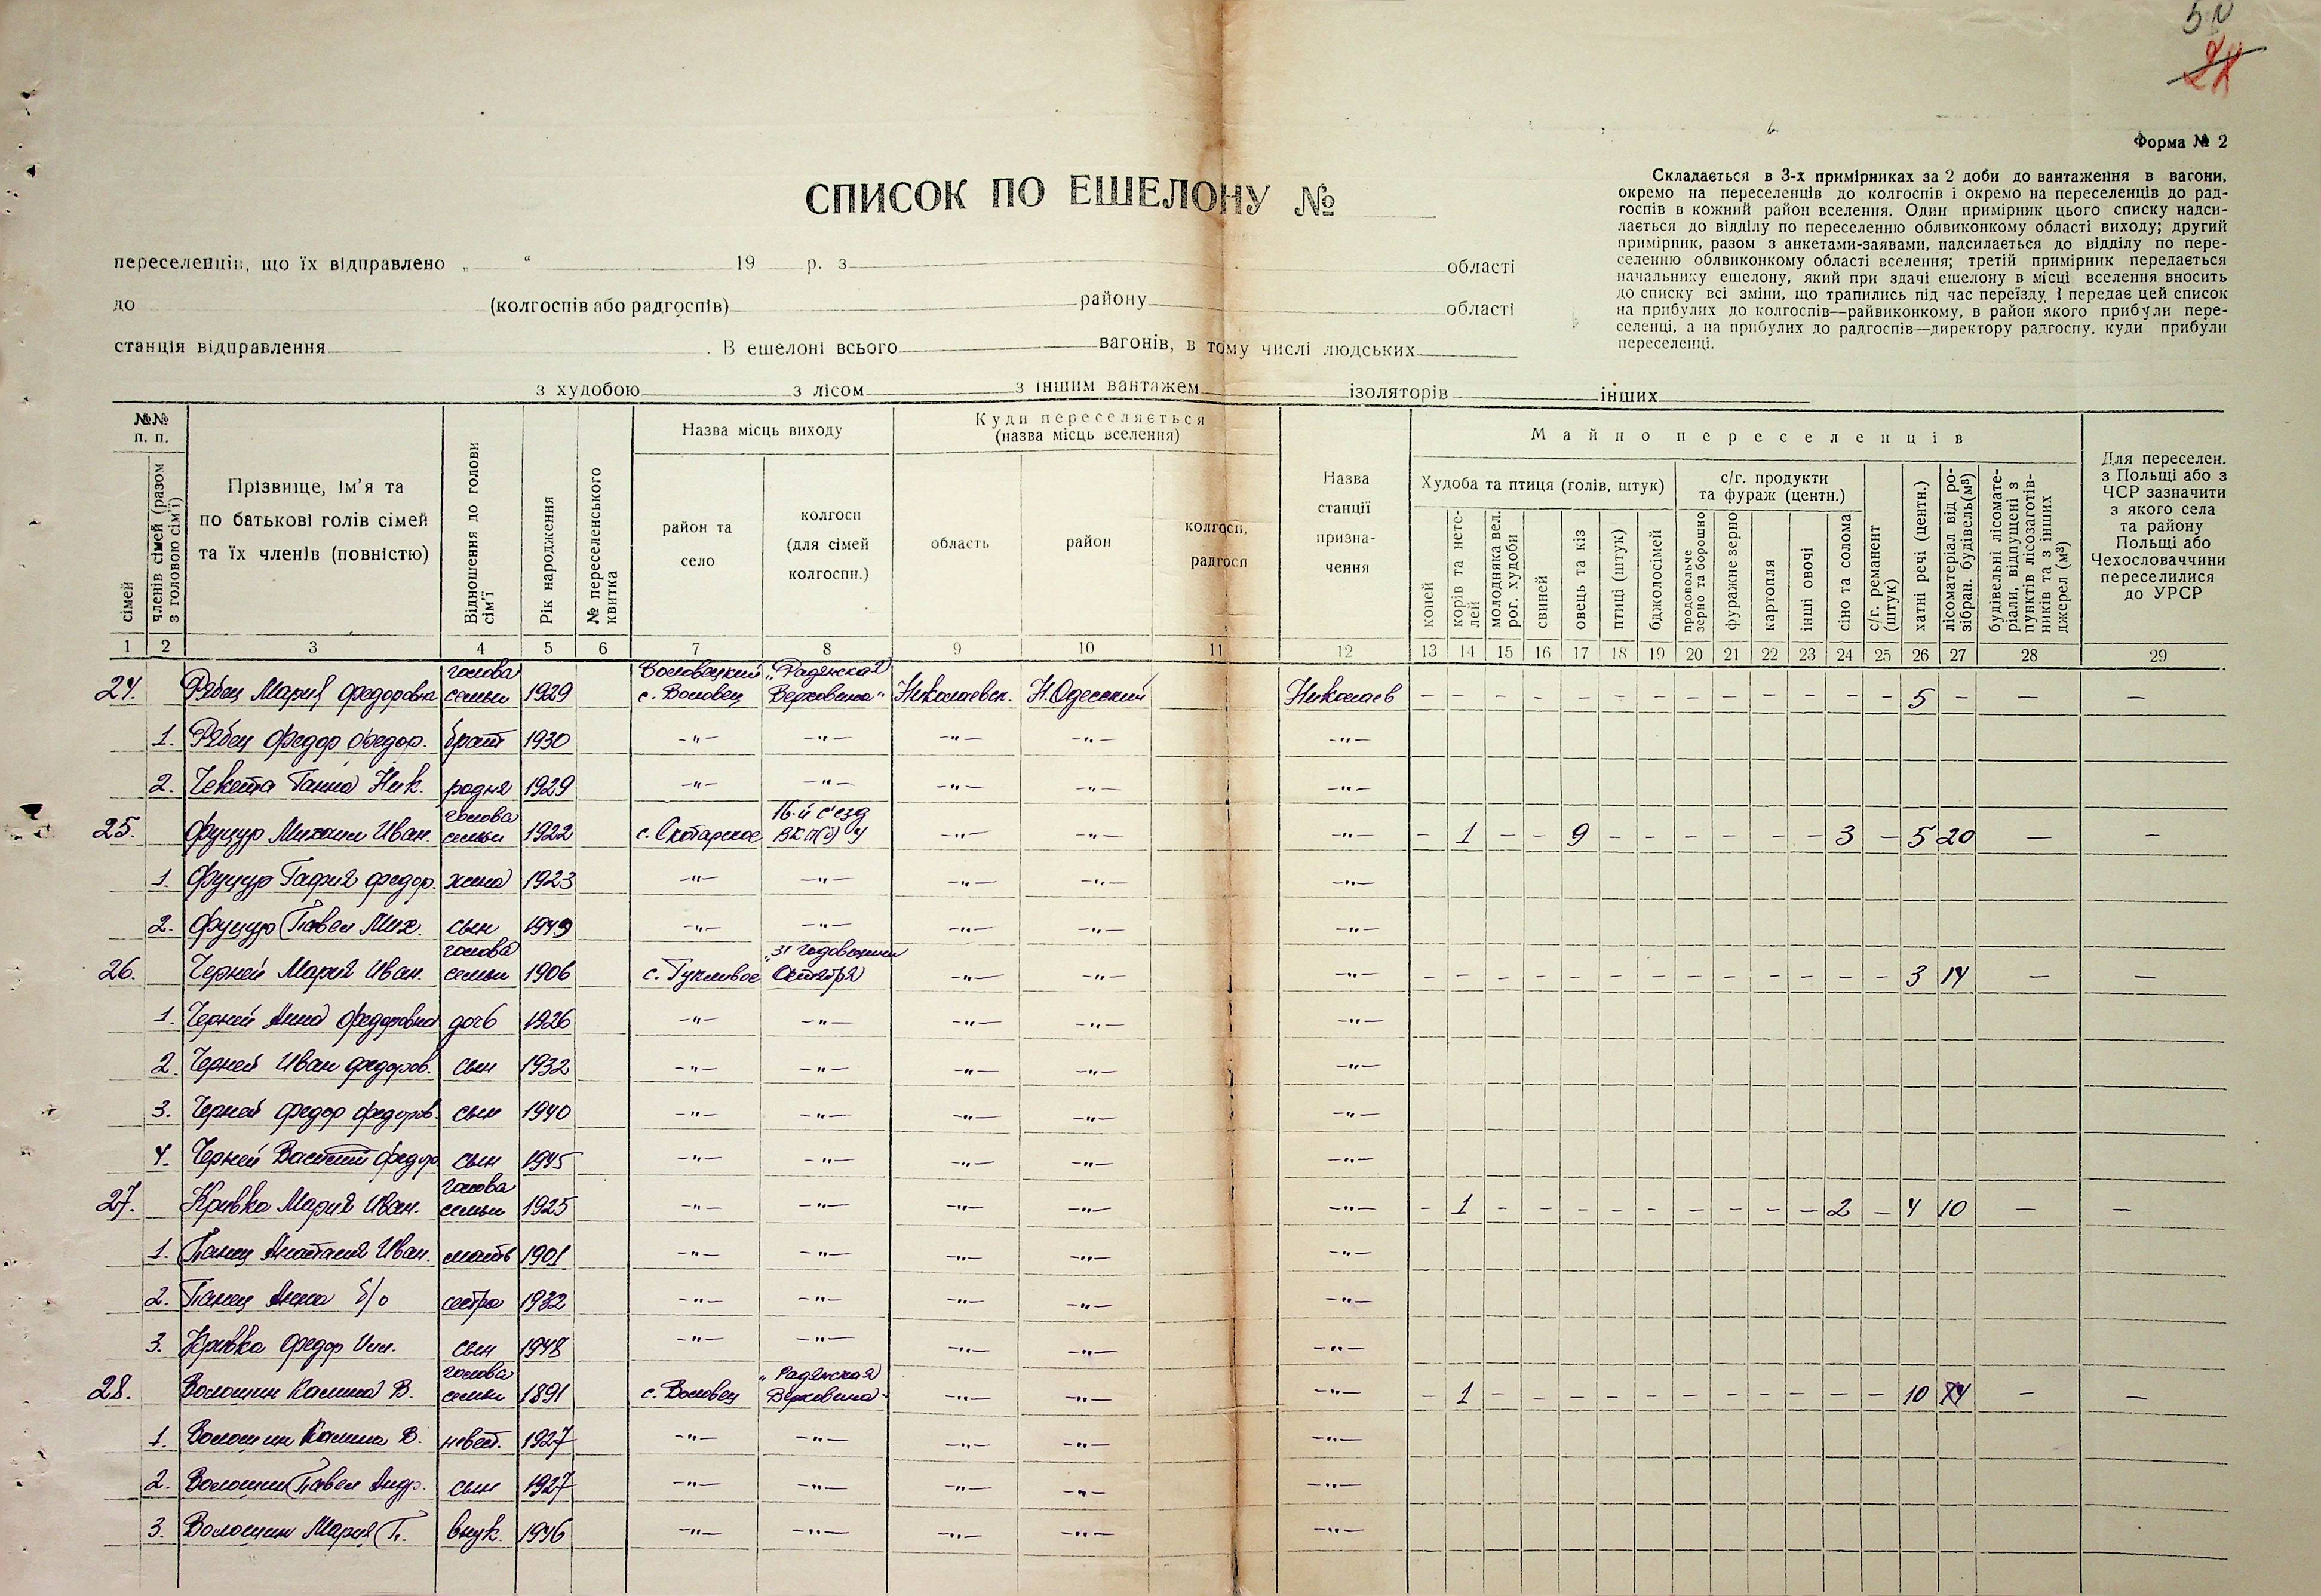 Форма № 2
СПИСОК ПО ЕШЕЛОНУ №
Складається в 3-х примірниках за 2 доби до вантаження в вагони,
окремо на переселенців до колгоспів і окремо на переселенців до рад-
госпів в кожний район вселення. Один примірник цього списку надси-
лається до відділу по переселенню облвиконкому області виходу; другий
примірник, разом з анкетами-заявами, надсилається до відділу по пере-
селенню облвиконкому області вселення; третій примірник передається
начальнику ешелону, який при здачі ешелону в місці вселення вносить
до списку всі зміни, що трапились під час переїзду, і передає цей список
на прибулих до колгоспів—райвиконкому, в район якого прибули пере-
селенці, а на прибулих до радгоспів—директору радгоспу, куди прибули
переселенці.
переселенців, що їх відправлено „ “ 19 р. з області
до (колгоспів або радгоспів) району області
станція відправлення . В ешелоні всього вагонів, в тому числі людських
з худобою з лісом з іншим вантажем ізоляторів інших
№№ п. п.
сімей
членів сімей (разом з головою сім'ї)
Прізвище, ім'я та
по батькові голів сімей
та їх членів (повністю)
Відношення до голови сім'ї
Рік народження
№ переселенського квитка
Назва місць виходу
район та
село
колгосп
(для сімей
колгоспн.)
Куди переселяється
(назва місць вселення)
область
район
колгосп,
радгосп
Назва
станції
призна-
чення
Майно переселенців
Худоба та птиця (голів, штук)
коней
корів та нете-
лей
молодняка вел.
рог. худоби
свиней
овець та кіз
птиці (штук)
бджолосімей
с/г. продукти
та фураж (центн.)
продовольче
зерно та борошно
фуражне зерно
картопля
інші овочі
сіно та солома
с/г. реманент
(штук)
хатні речі (центн.)
лісоматеріал від ро-
зібран. будівель(м³)
будівельні лісомате-
ріали, відпущені з
пунктів лісозаготів-
ників та з інших
джерел (м³)
Для переселен.
з Польщі або з
ЧСР зазначити
з якого села
та району
Польщі або
Чехословаччини
переселилися
до УРСР
1 2 3 4 5 6 7 8 9 10 11 12 13 14 15 16 17 18 19 20 21 22 23 24 25 26 27 28 29
24. Рябец Мария Федоровна голова семьи 1929 Воловецкий с. Воловец „Радянская Верховина" Николаевск. Н.Одесский Николаев - - - - - - - - - - - - - 5 - - -
1. Рябец Федор Федор. брат 1930 -"- -"- -"- -"- -"-
2. Чекета Ганна Ник. родня 1929 -"- -"- -"- -"- -"-
25. Фуцур Михаил Иван. голова семьи 1922 с. Скотарское 16-й с'езд ВКП(б)У -"- -"- -"- - 1 - - 9 - - - - - - 3 - 5 20 - -
1. Фуцур Гафия Федор. жена 1923 -"- -"- -"- -"- -"-
2. Фуцур Павел Мих. сын 1949 -"- -"- -"- -"- -"-
26. Черней Мария Иван. голова семьи 1906 с. Гукливое „31 годовщина Октября -"- -"- -"- - - - - - - - - - - - - - 3 14 - -
1. Черней Анна Федоровна дочь 1926 -"- -"- -"- -"- -"-
2. Черней Иван Федоров. сын 1932 -"- -"- -"- -"- -"-
3. Черней Федор Федоров. сын 1940 -"- -"- -"- -"- -"-
4. Черней Василий Федор сын 1945 -"- -"- -"- -"- -"-
27. Кривка Мария Иван. голова семьи 1925 -"- -"- -"- -"- -"- - 1 - - - - - - - - - 2 - 4 10 - -
1. Танец Анастасия Иван. мать 1901 -"- -"- -"- -"- -"-
2. Танец Анна б/о сестра 1932 -"- -"- -"- -"- -"-
3. Кривка Федор сын 1948 -"- -"- -"- -"- -"-
28. Волошин Калина В. голова семьи 1891 с. Воловец „Радянская Верховина" -"- -"- -"- - 1 - - - - - - - - - - - 10 - -
1. Волошин Калина В. невест. 1927 -"- -"- -"- -"- -"-
2. Волошин Павел Андр. сын 1927 -"- -"- -"- -"- -"-
3. Волошин Мария П. внук. 1946 -"- -"- -"- -"- -"-